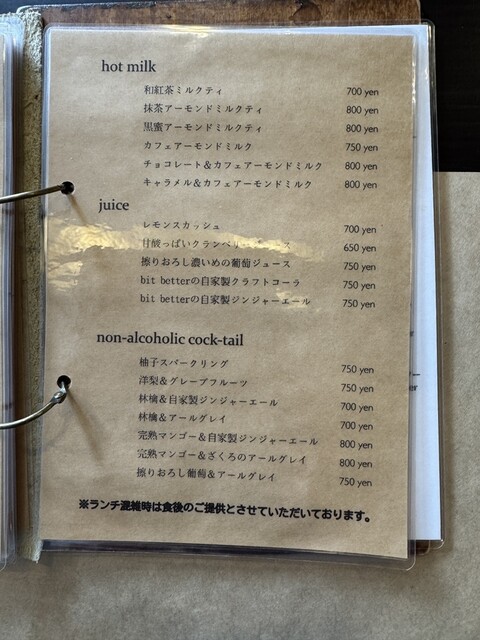 hot milk
和紅茶ミルクティ 700 yen
抹茶アーモンドミルクティ 800 yen
黒蜜アーモンドミルクティ 800 yen
カフェアーモンドミルク 750 yen
チョコレート&カフェアーモンドミルク 800 yen
キャラメル&カフェアーモンドミルク 800 yen
juice
レモンスカッシュ 700 yen
甘酸っぱいクランベリージュース 650 yen
擦りおろし濃いめの葡萄ジュース 750 yen
bit betterの自家製クラフトコーラ 750 yen
bit betterの自家製ジンジャーエール 750 yen
non-alcoholic cock-tail
柚子スパークリング 750 yen
洋梨&グレープフルーツ 750 yen
林檎&自家製ジンジャーエール 700 yen
林檎&アールグレイ 700 yen
完熟マンゴー&自家製ジンジャーエール 800 yen
完熟マンゴー&ざくろのアールグレイ 800 yen
擦りおろし葡萄&アールグレイ 750 yen
※ランチ混雑時は食後のご提供とさせていただいております。